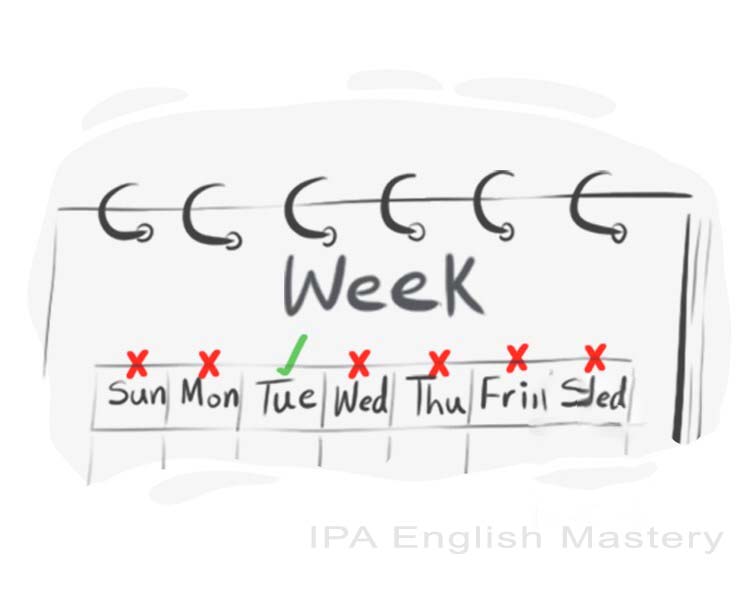 Week
Sun Mon Tue Wed Thu
IPA English Mastery